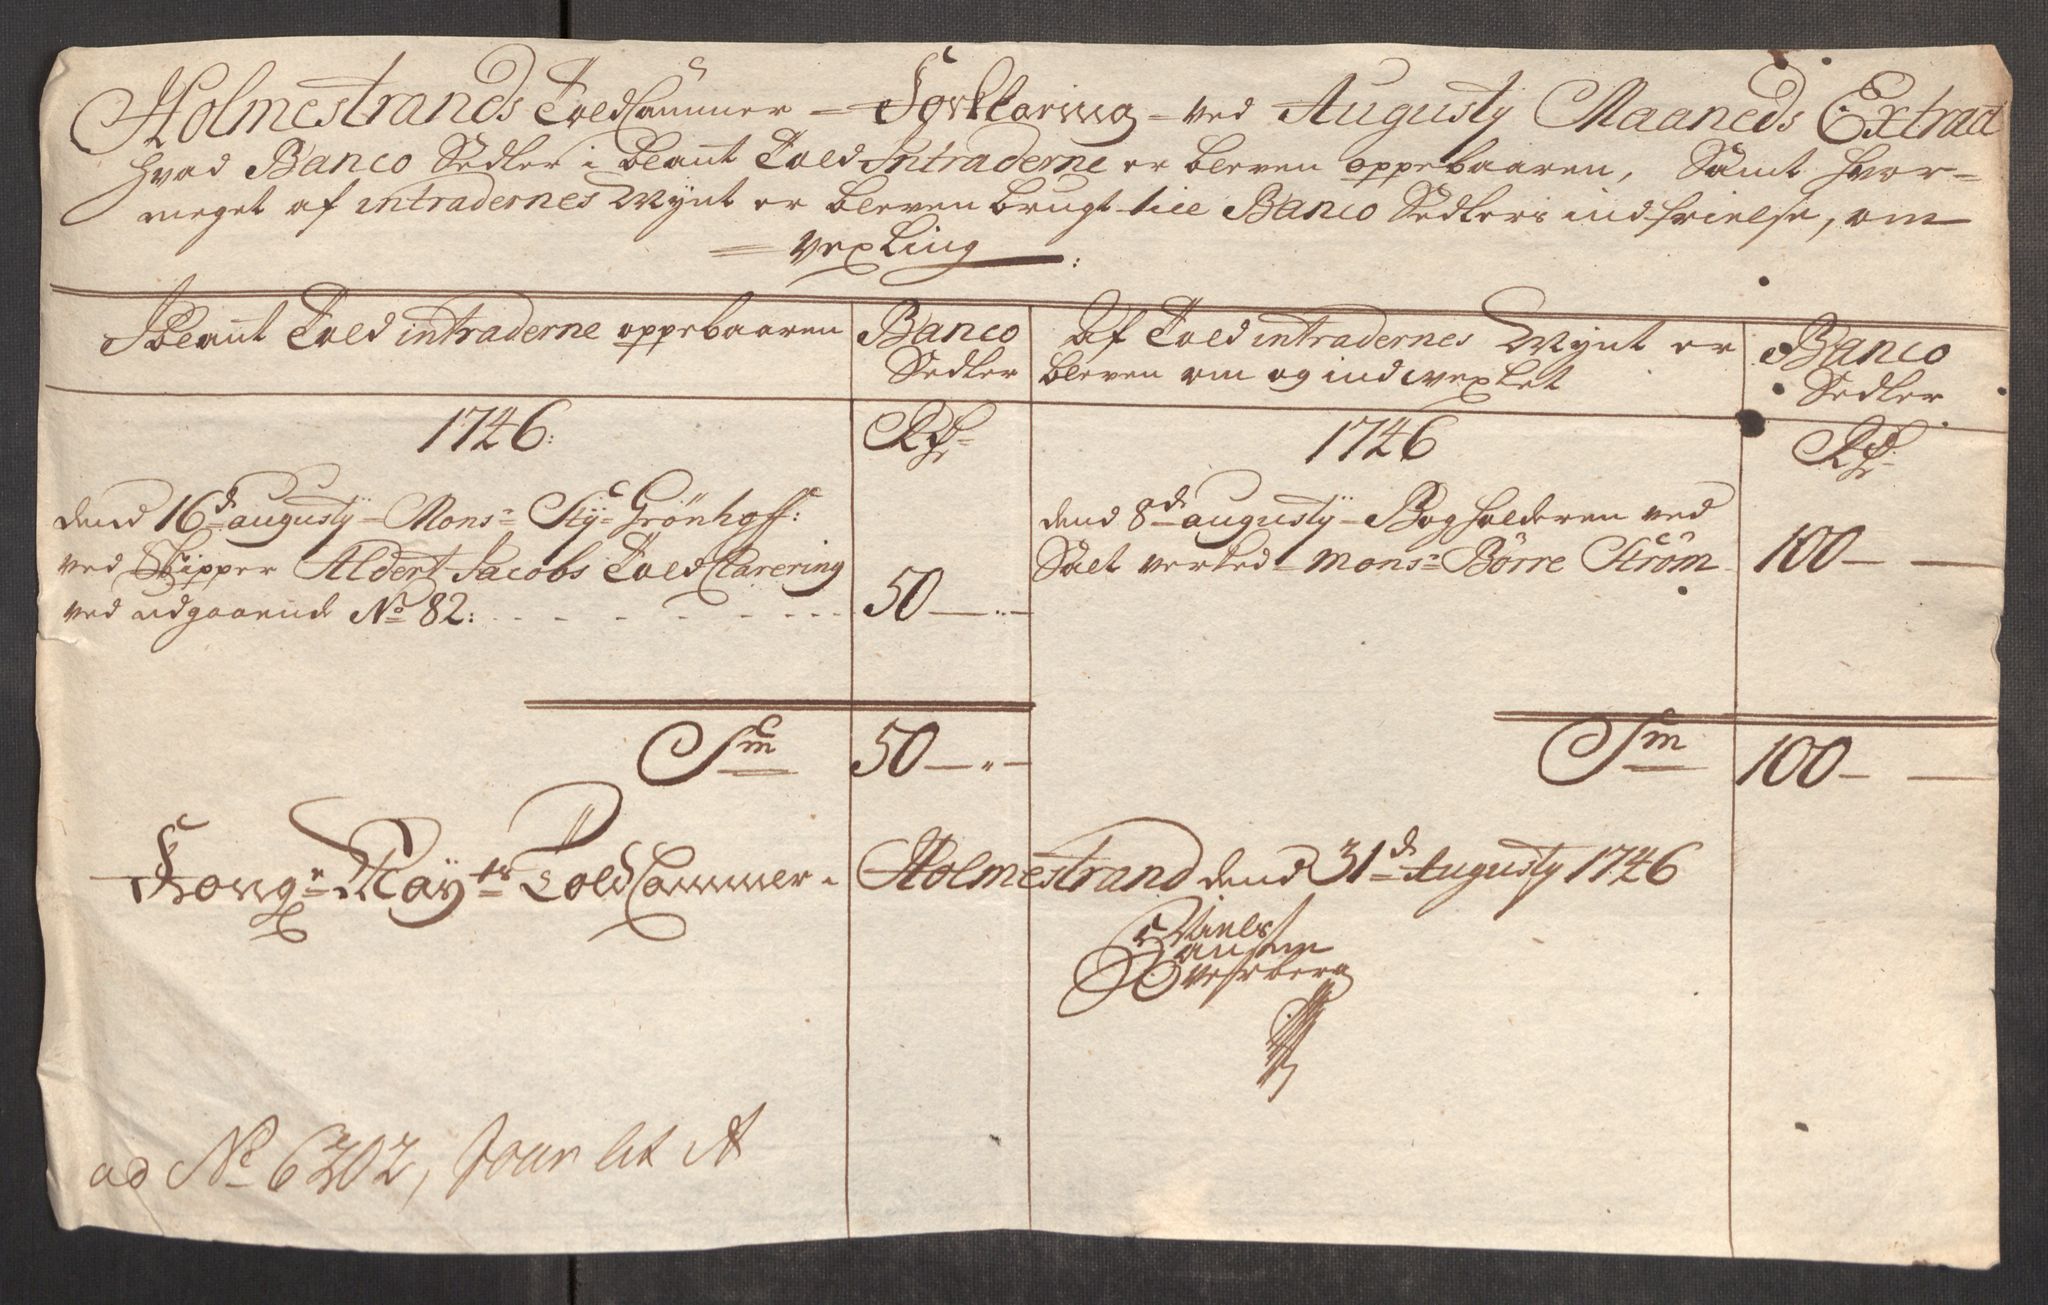 Holmestrands Told Cammer - Forklaring - ved Augusty Maaneds Extract
hvad Banco Sedler i blant Told Intraderne er bleven oppebaaren, Samt hvor-
meget af intradernes Mynt er bleven brugt till Banco Sedlers indfrielse, om
vexling
Iblant Told intraderne oppebaaren
Banco
Sedler
Af Told intradernes Mynt er
bleven om og ind vexlet
Banco
Sedler
1746:
Rdr
1746
Rdr
dend 16de augusty - Mons: Grönhoff:
ved Skipper Aldert Jacobs Told Clarering
ved udgaaende No 82:
50
dend 8de augusty - Bogholderen ved
Salt verked - Mons: Börre Ström
100
Sm
50
Sm
100
Kong: Mayts Told Cammer. Holmestrand dend 31de Augusty 1746
Niels
Hansen
Sverberg
ad No 6202, Jour lit A